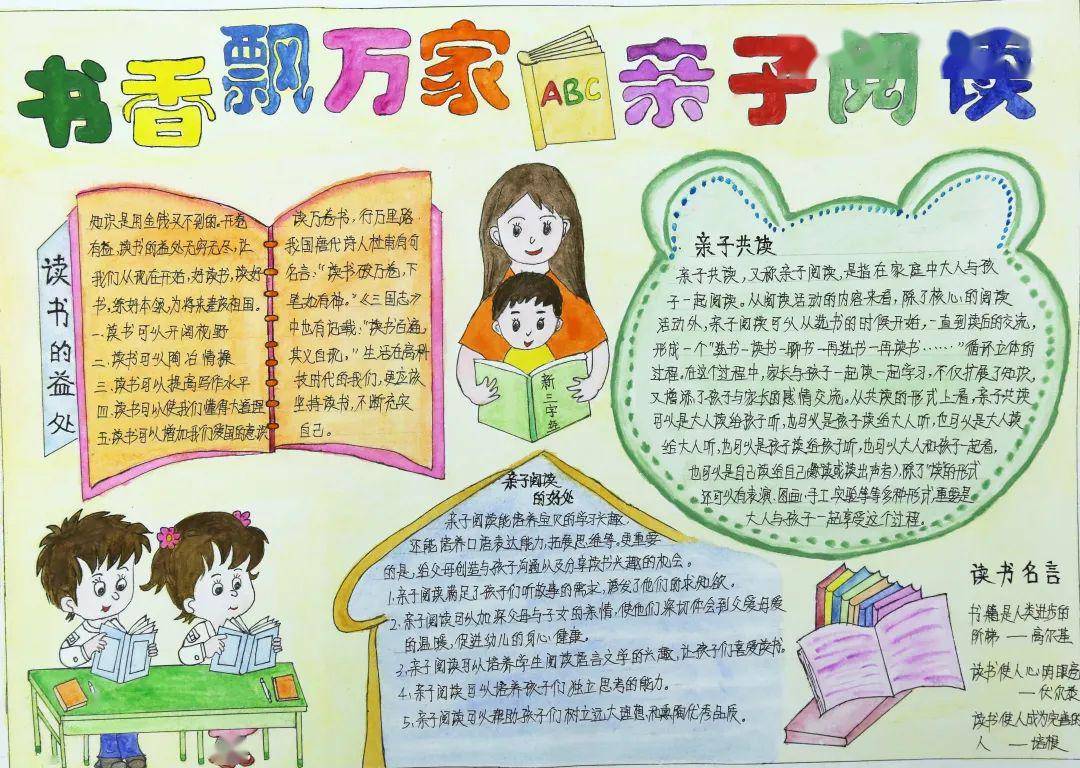 书香飘万家
ABC
亲子阅读
读书的益处
知识是用金钱买不到的。开卷
有益,读书的益处无穷无尽,让
我们从现在开始,好读书,读好
书,练好本领,为将来建设祖国。
一.读书可以开阔视野
二.读书可以陶冶情操
三.读书可以提高写作水平
四.读书可以使我们懂得大道理
五.读书可以增加我们爱国的意识
读万卷书,行万里路.
我国唐代诗人杜甫有句
名言:“读书破万卷,下
笔如有神。”《三国志》
中也有记载:“读书百遍,
其义自现。”生活在高科
技时代的我们,更应该
坚持读书,不断充实
自己。
新三字经
亲子共读
亲子共读,又称亲子阅读,是指在家庭中大人与孩
子一起阅读。从阅读活动的内容来看,除了核心的阅读
活动外,亲子阅读可以从选书的时候开始,一直到读后的交流,
形成一个“选书—读书—聊书—再选书—再读书……”循环立体的
过程。在这个过程中,家长与孩子一起读一起学习,不仅扩展了知识,
又增添了孩子与家长的感情交流。从共读的形式上看,亲子共读
可以是大人读给孩子听,也可以是孩子读给大人听,也可以是大人读
给大人听,也可以是孩子读给孩子听,也可以大人和孩子一起看,
也可以是自己读给自己(默读或读出声音),除了“读”的形式
还可以有表演、图画、手工、实验等等多种形式,重要是
大人与孩子一起享受这个过程。
亲子阅读
的好处
亲子阅读能培养宝贝的学习兴趣,
还能培养口语表达能力,拓展思维等。更重要
的是,给父母创造与孩子沟通以及分享读书兴趣的机会。
1.亲子阅读满足了孩子们听故事的需求,激发了他们的求知欲。
2.亲子阅读可以加深父母与子女的亲情,使他们深切体会到父爱母爱
的温暖,促进幼儿的身心健康。
3.亲子阅读可以培养学生阅读语言文学的兴趣,让孩子们喜爱读书。
4.亲子阅读可以培养孩子们独立思考的能力。
5.亲子阅读可以帮助孩子们树立远大理想和熏陶优秀品质。
读书名言
书籍是人类进步的
阶梯——高尔基
读书使人心明眼亮
——伏尔泰
读书使人成为完善的
人——培根